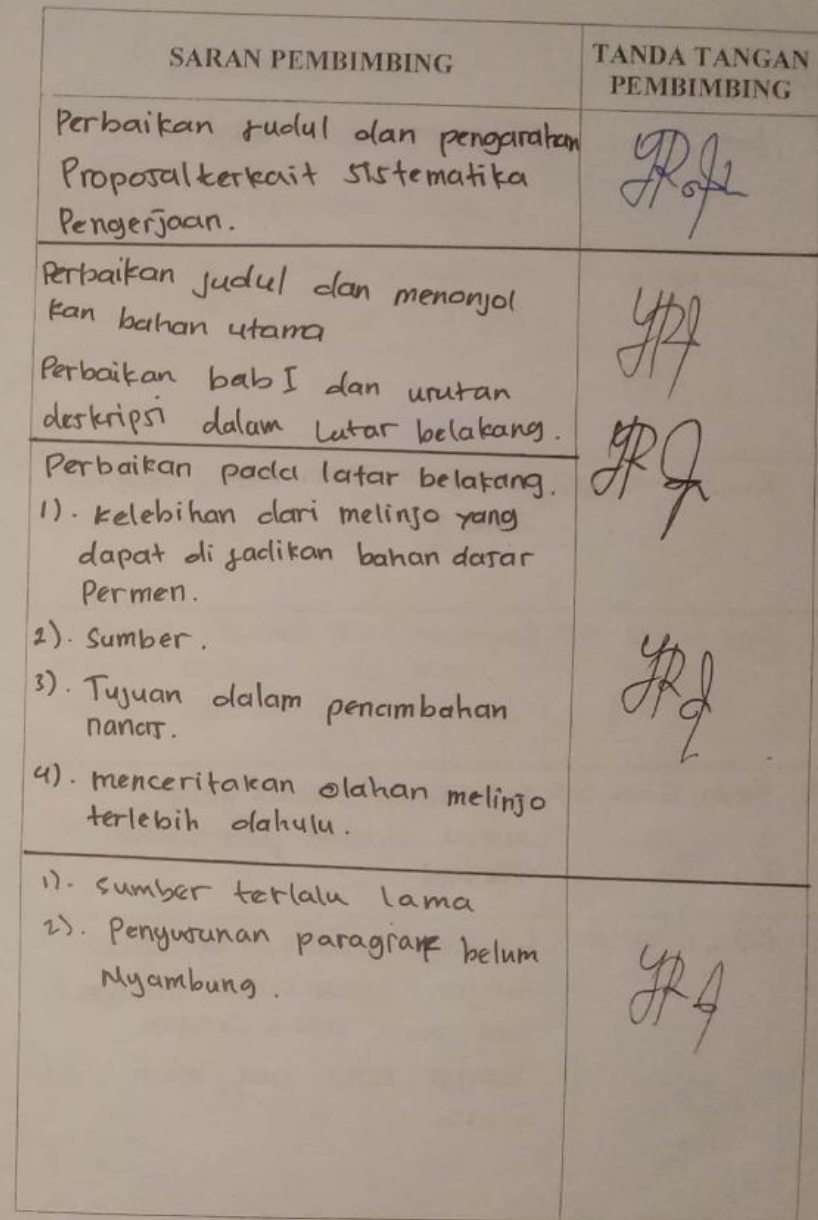 SARAN PEMBIMBING
TANDA TANGAN
PEMBIMBING
Perbaikan judul dan pengarahan
Proposal terkait sistematika
Pengerjaan.
Perbaikan judul dan menonjol
kan bahan utama
Perbaikan bab I dan urutan
deskripsi dalam Latar belakang.
Perbaikan pada latar belakang.
1). kelebihan dari melinjo yang
dapat di jadikan bahan dasar
Permen.
2). Sumber.
3). Tujuan dalam penambahan
nanas.
4). menceritakan olahan melinjo
terlebih dahulu.
1). sumber terlalu lama
2). Penyusunan paragraf belum
Nyambung.